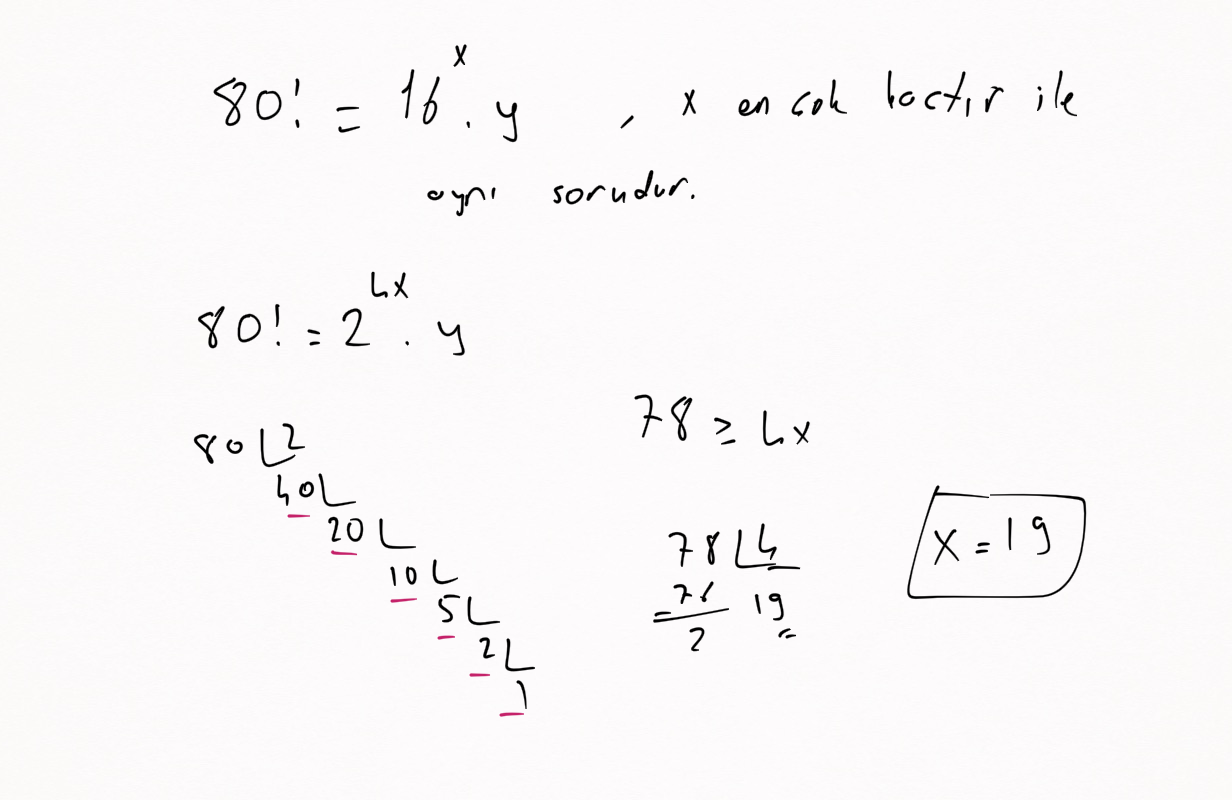 80! = 16^x . y , x en çok kaçtır ile
aynı sorudur.
80! = 2^4x . y
80 | 2
40 |
20 |
10 |
5 |
2 |
1
78 ≥ 4x
78 | 4
- 76 19
2
x = 19